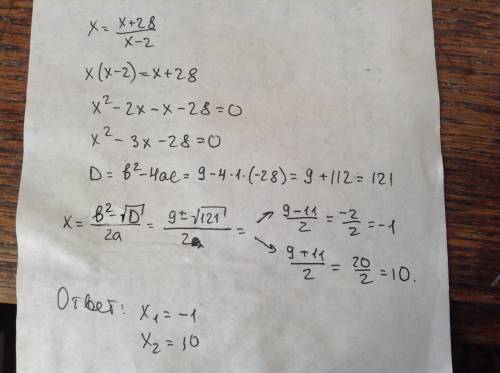 x = x+28 / x-2
x(x-2)=x+28
x²-2x-x-28=0
x²-3x-28=0
D = b²-4ac = 9-4·1·(-28) = 9+112 = 121
x = b²-√D / 2a = 9±√121 / 2 = ↗ 9-11 / 2 = -2 / 2 = -1
↘ 9+11 / 2 = 20 / 2 = 10.
Ответ: x₁ = -1
x₂ = 10